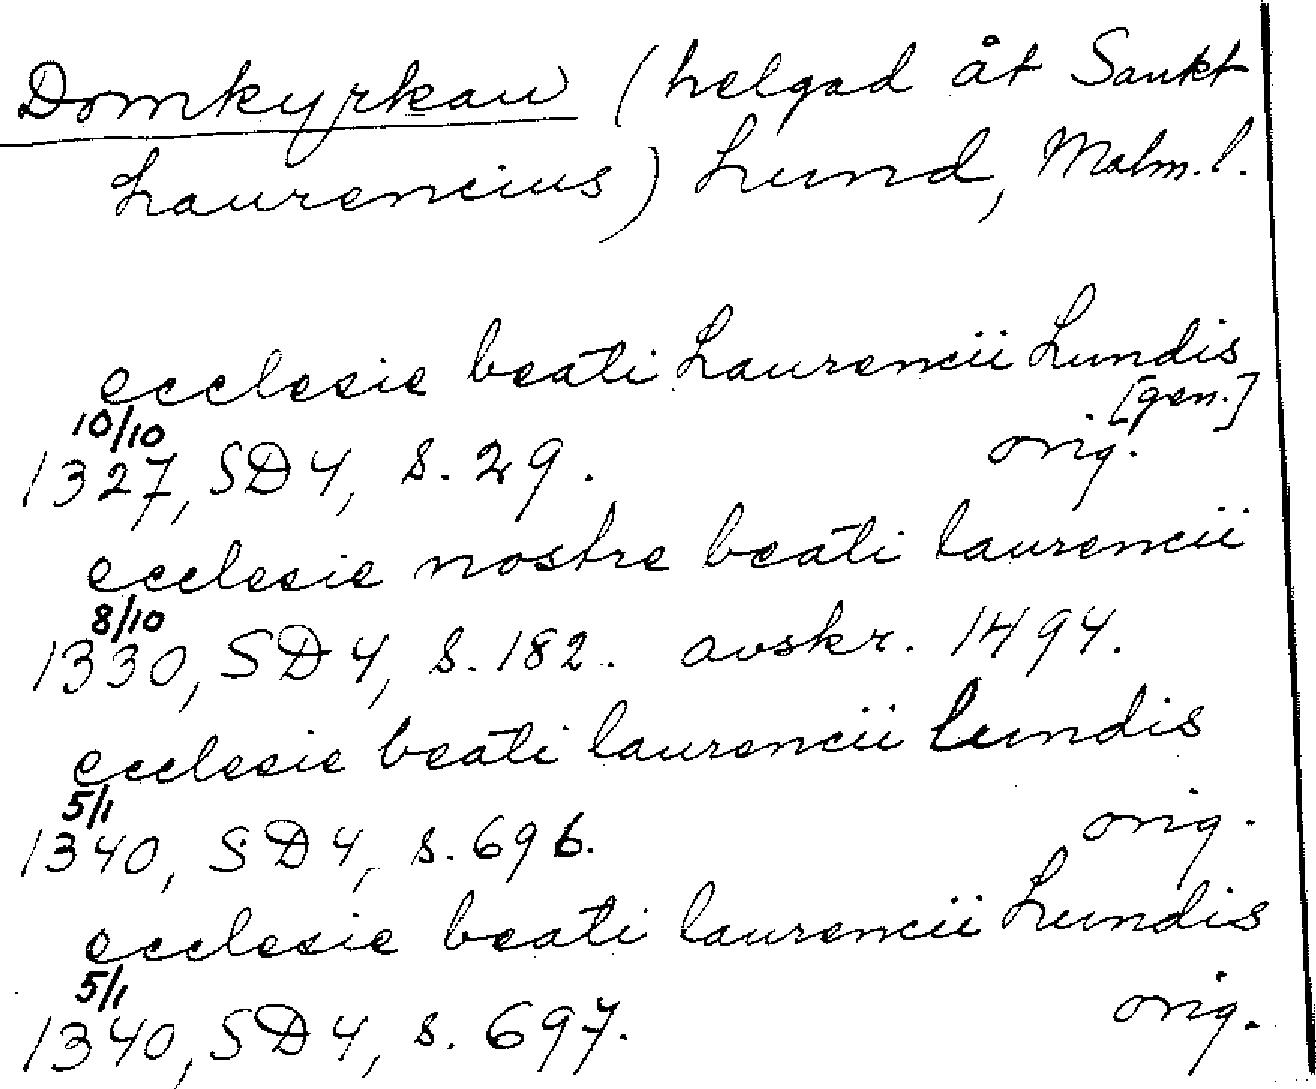 Domkyrkan (helgad åt Sankt
Laurencius) Lund, Malm.l.
ecclesie beati Laurencii Lundis
[gen.]
10/10
1327, SD 4, s. 29. orig.
ecclesie nostre beati laurencii
8/10
1330, SD 4, s. 182. avskr. 1494.
ecclesie beati laurencii lundis
5/1
1340, SD 4, s. 696. orig.
ecclesie beati laurencii Lundis
5/1
1340, SD 4, s. 697. orig.